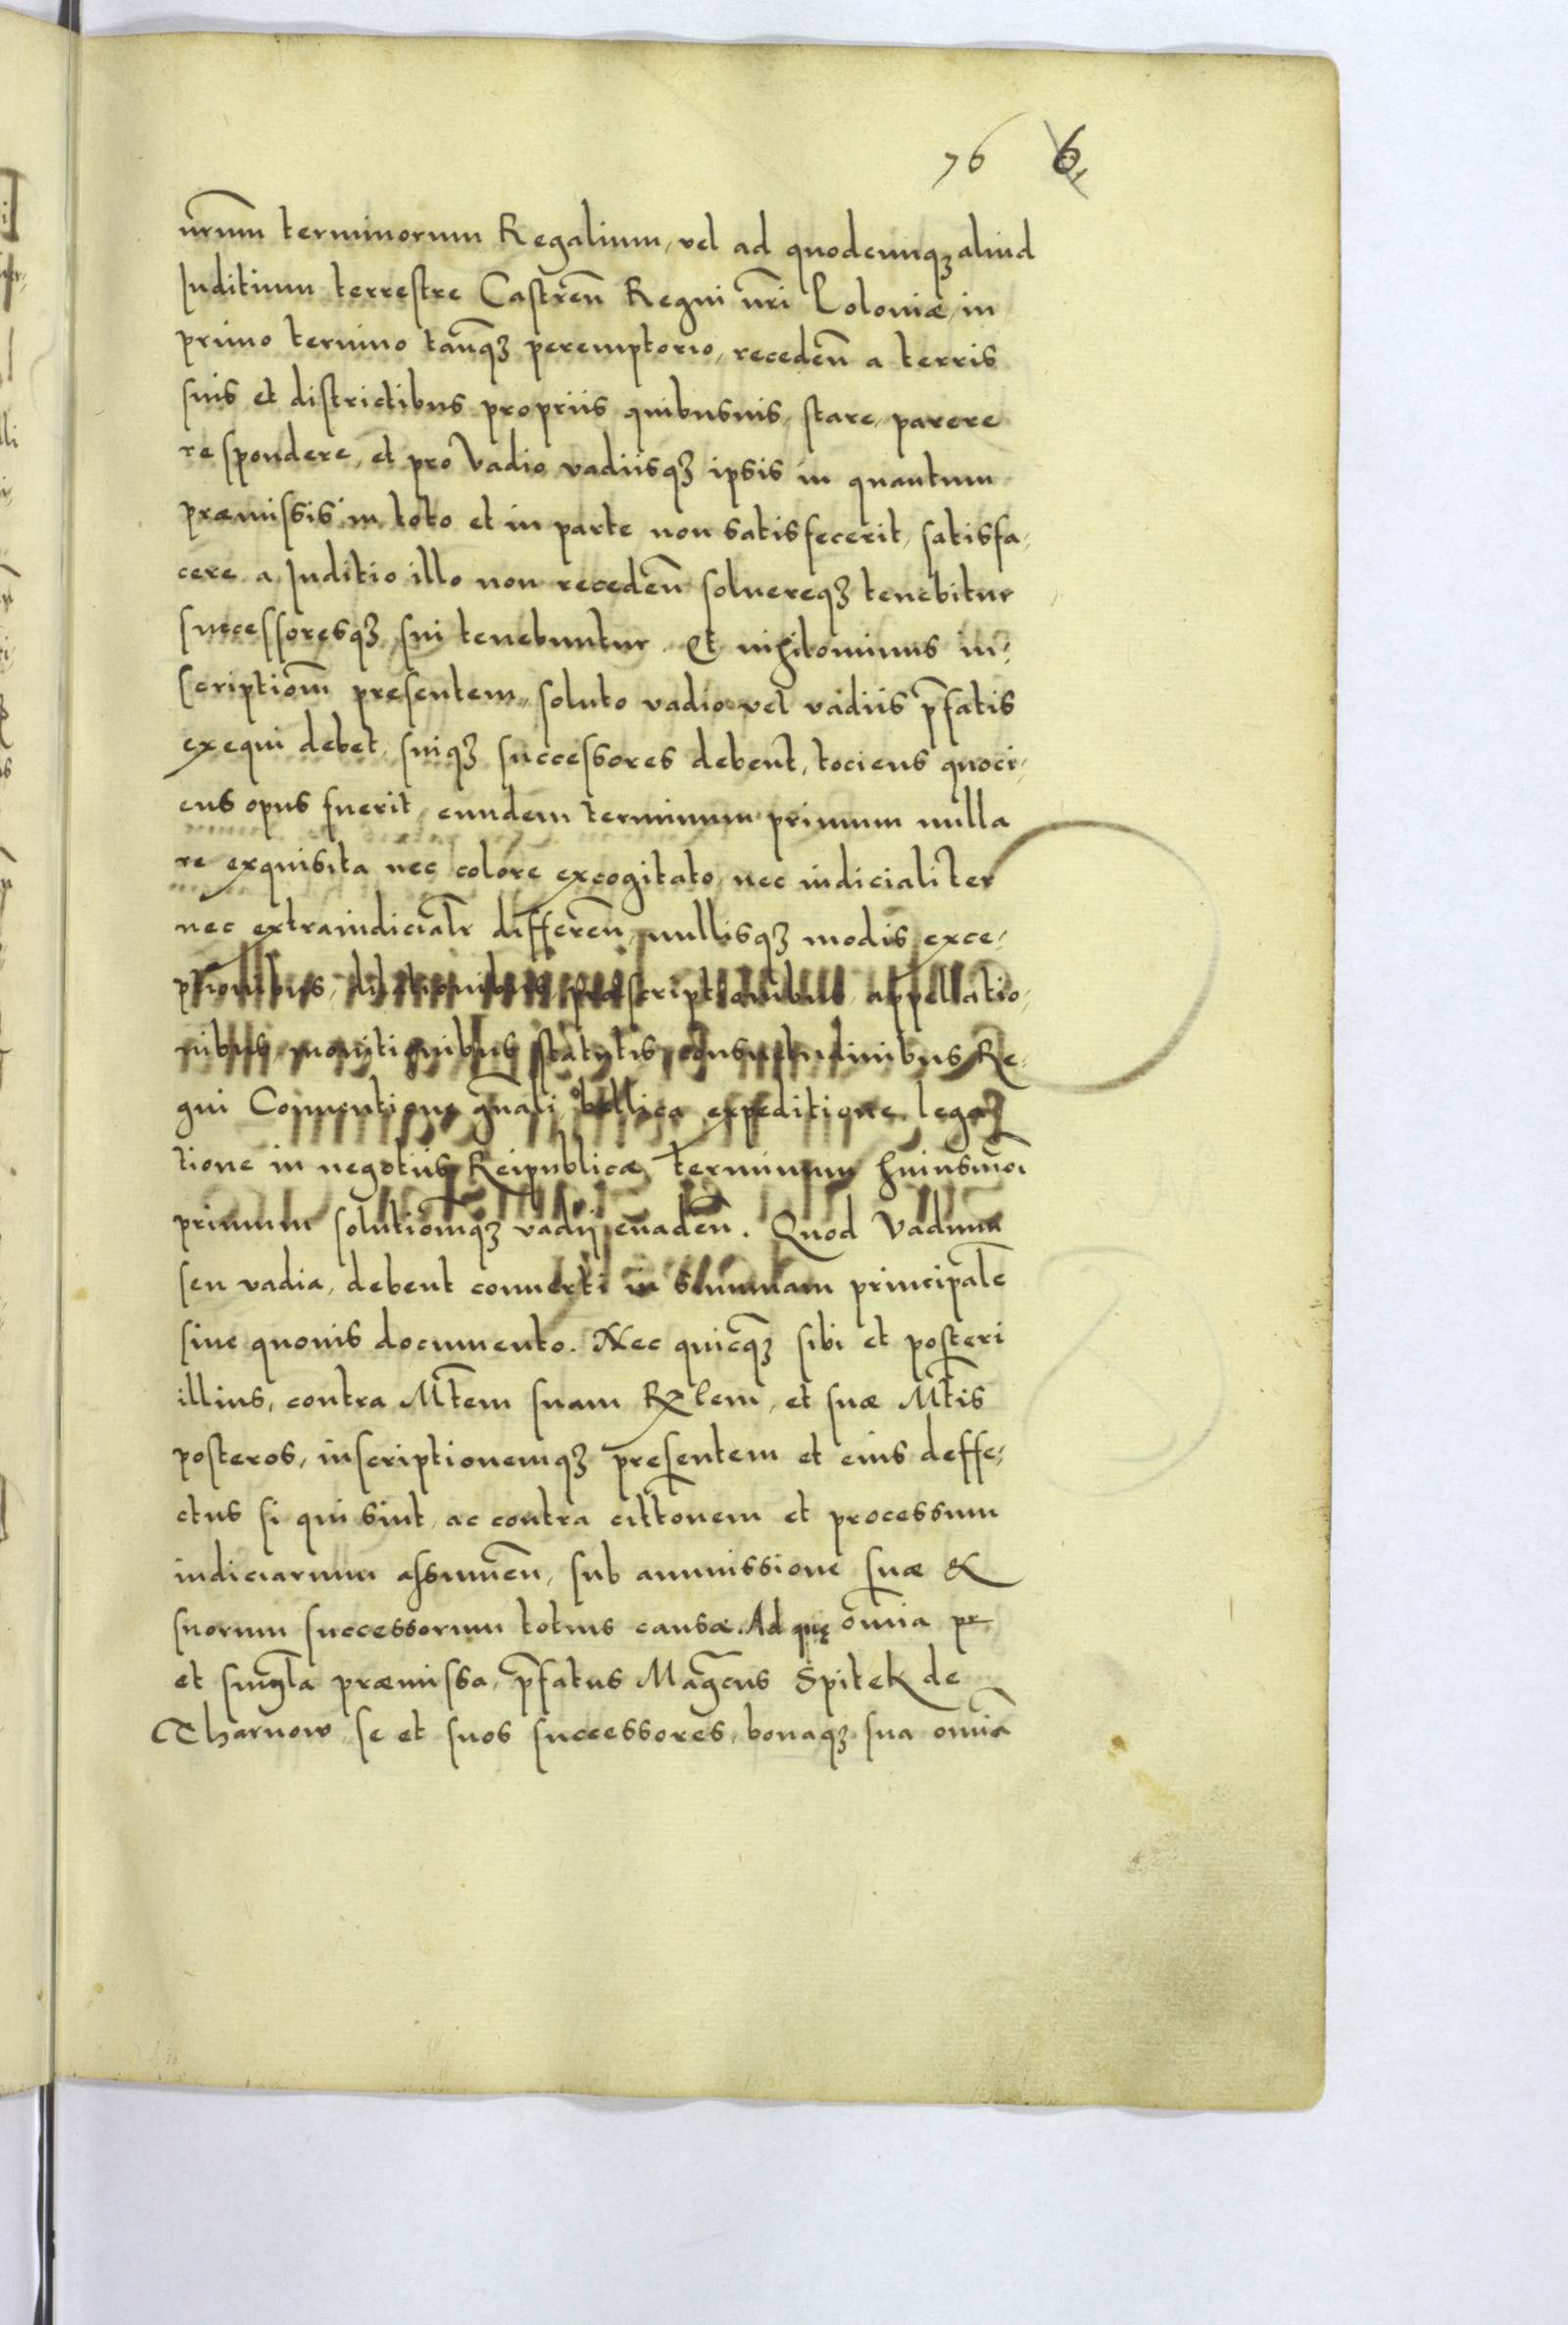 76 6
nr̃um terminorum Regalium, vel ad quodcunq aliud
Juditium terrestre Castreñ Regni nr̃i Poloniæ, in
primo termino tanq̃ peremptorio, recedeñ a terris
suis et districtibus propriis quibusuis, stare, parere
respondere, et pro Vadio vadiisq ipsis in quantum
præmissis in toto et in parte non satisfecerit, satisfa,
cere a Juditio illo non recedeñ soluereq tenebitur
successoresq sui tenebuntur. Et nihilominus in,
scriptiom̃ presentem, soluto vadio vel vadiis p̃fatis
exequi debet, suiq successores debent, tociens quoci,
ens opus fuerit, eundem terminum primum nulla
re exquisita nec colore excogitato, nec iudicialiter
nec extraiudicialr̃ differeñ, nullisq modis, exce,
ptionibus, dilationibus, præscriptionibus, appellatio,
nibus, monitionibus, statutis, consuetudinibus Re,
gni Conuentione gn̄ali, bellica expeditione, lega,
tione in negotiis Reipublicæ, terminum huiusmõi
primum solutiomq̃ vadij euadeñ. Quod Vadium
seu vadia, debent conuerti in summam principalẽ
sine quouis documento. Nec quicq̃ sibi et posteri
illius, contra Mt̃em suam Rẽlem, et suæ Mt̃is
posteros, inscriptionemq presentem et eius deffe,
ctus si qui sint, ac contra citt̃onem et processum
iudiciarium assumeñ, sub ammissione suæ &
suorum successorum totius causæ. Ad quę om̃ia pr
et singl̃a præmissa, p̃fatus Mag̃cus Spitek de
Tharnow, se et suos successores, bonaq sua om̃ia